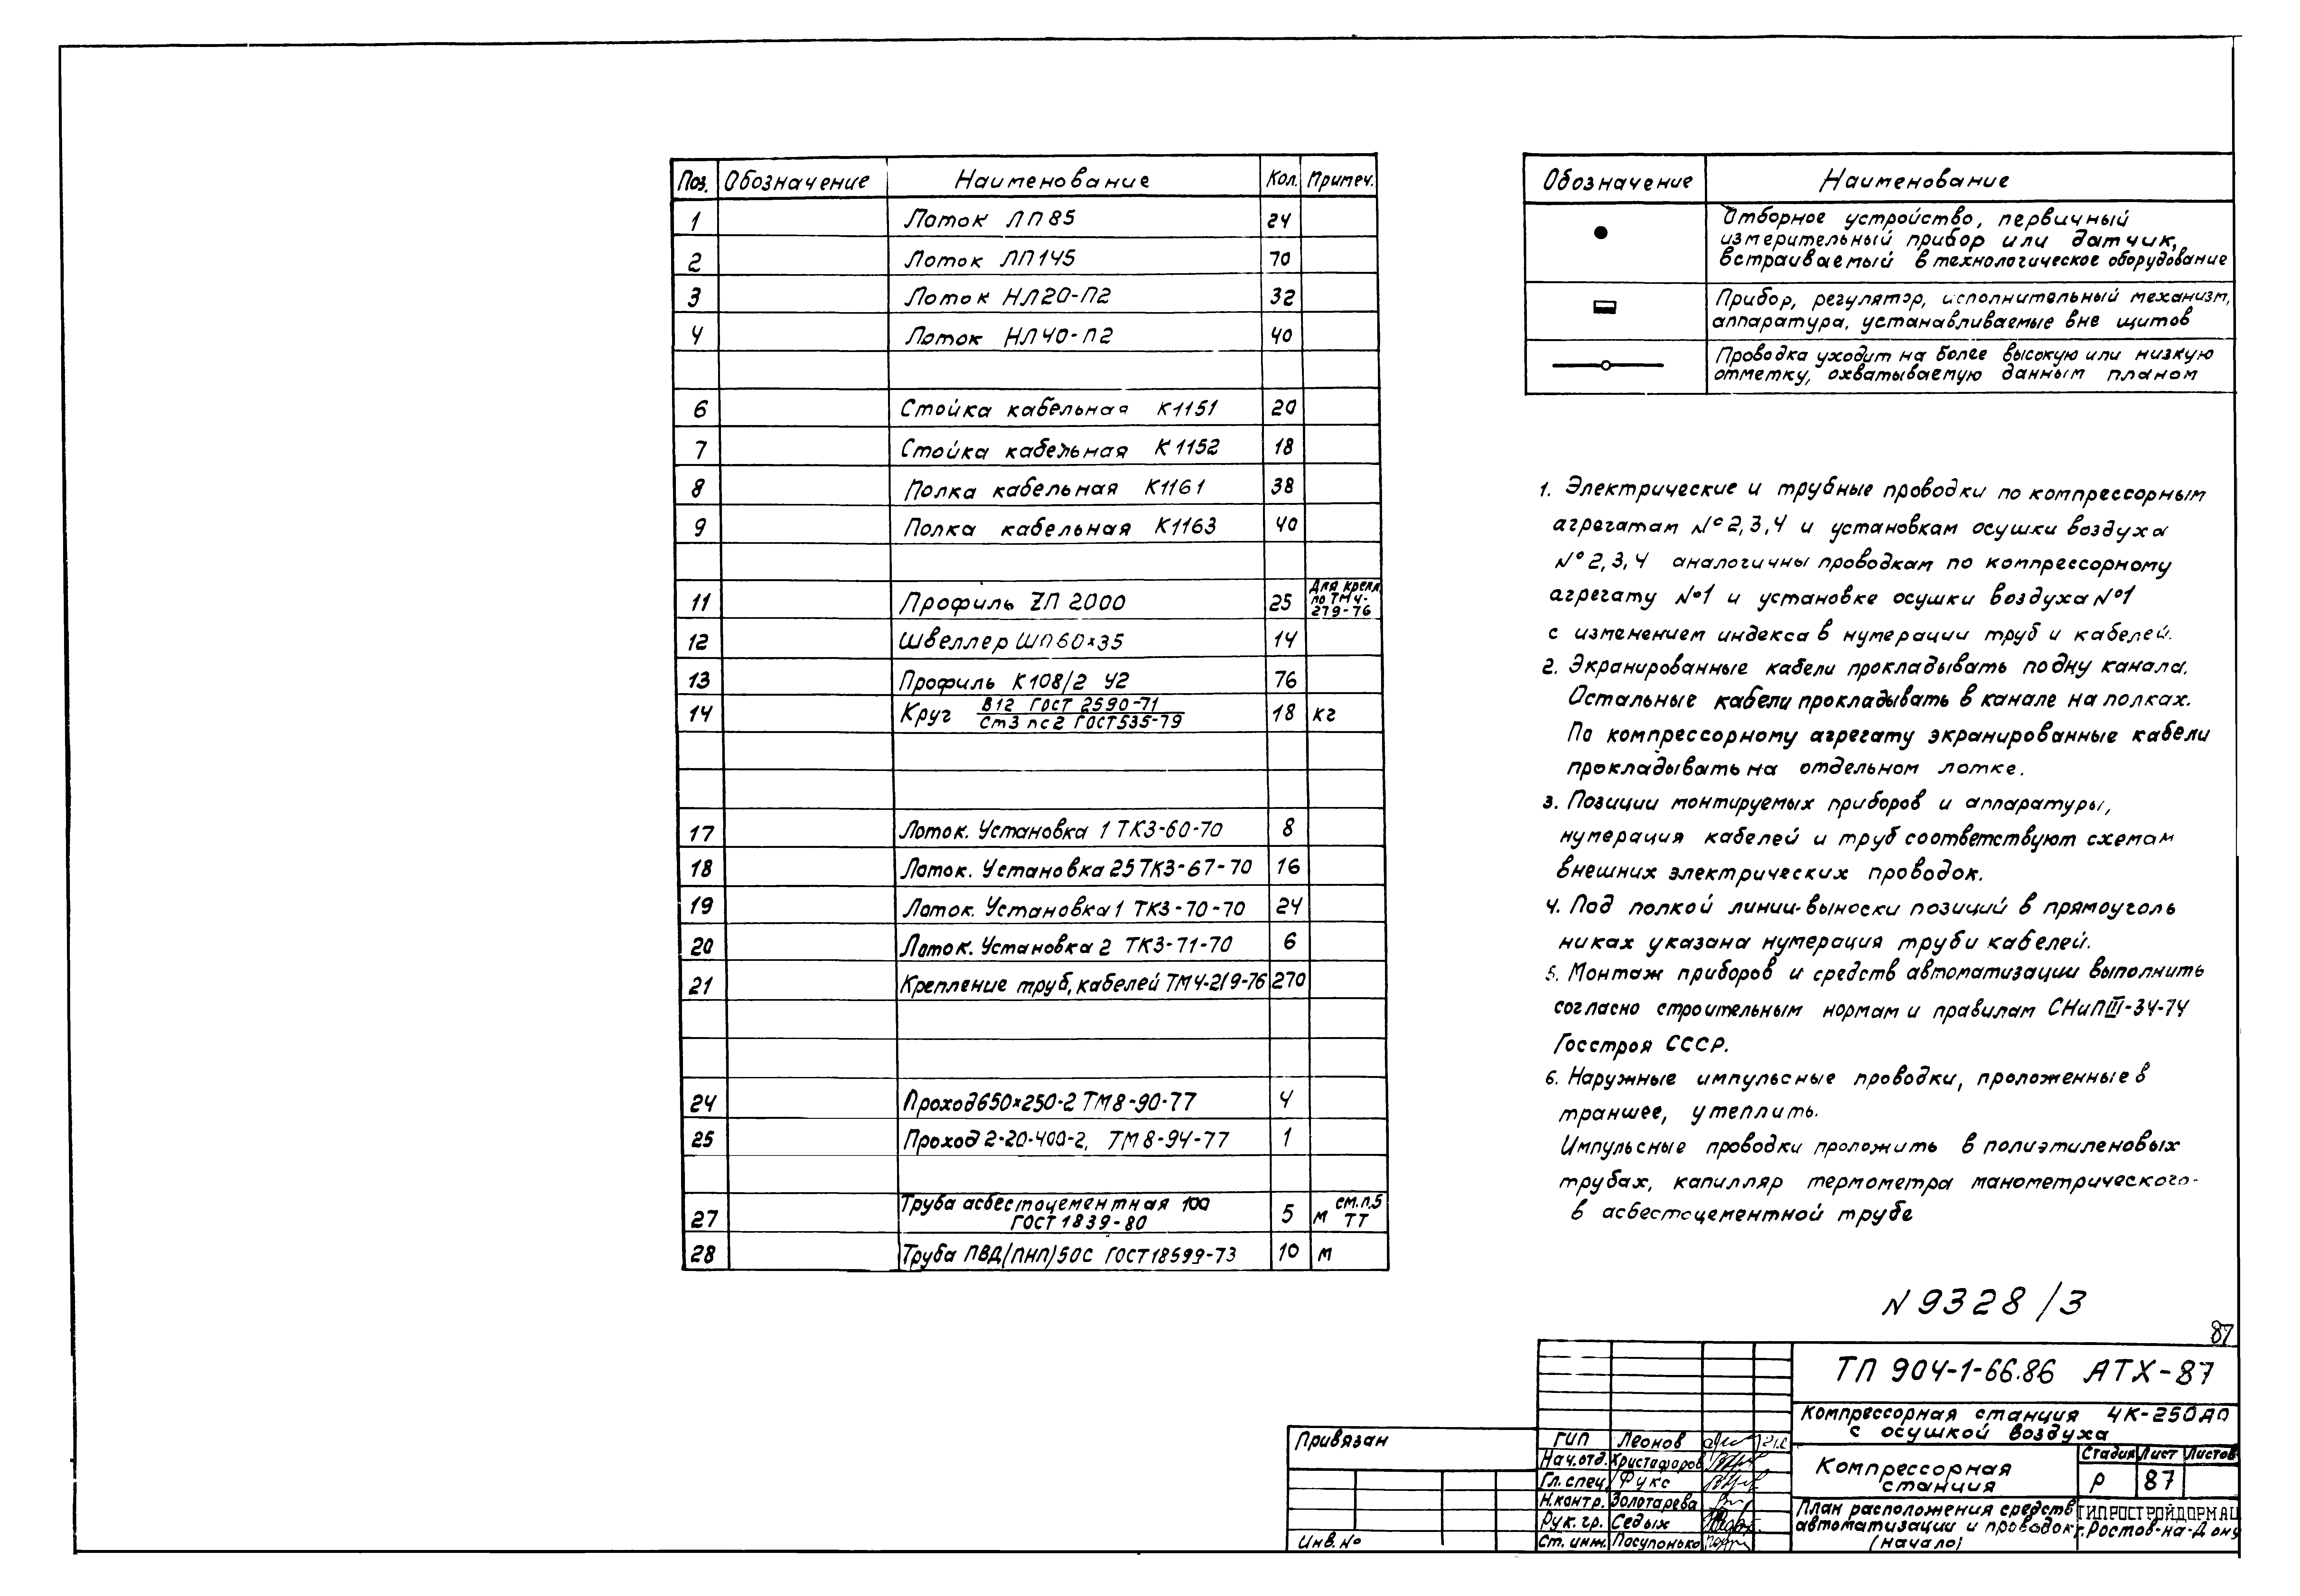 Поз. Обозначение Наименование Кол. Примеч.
1 Лоток ЛП85 24
2 Лоток ЛП145 70
3 Лоток НЛ20-П2 32
4 Лоток НЛ40-П2 40
6 Стойка кабельная К1151 20
7 Стойка кабельная К1152 18
8 Полка кабельная К1161 38
9 Полка кабельная К1163 40
11 Профиль ZП 2000 25 Для крепл. по ТМ4-279-76
12 Швеллер ШП60×35 14
13 Профиль К108/2 У2 76
14 Круг В12 ГОСТ 2590-71 / Ст3 пс2 ГОСТ535-79 18 кг
17 Лоток. Установка 1 ТК3-60-70 8
18 Лоток. Установка 25 ТК3-67-70 16
19 Лоток. Установка 1 ТК3-70-70 24
20 Лоток. Установка 2 ТК3-71-70 6
21 Крепление труб, кабелей ТМ4-219-76 270
24 Проход 650×250-2 ТМ8-90-77 4
25 Проход 2-20-400-2, ТМ8-94-77 1
27 Труба асбестоцементная 100 ГОСТ 1839-80 5 м см.п.5 ТТ
28 Труба ПВД(ПНП)50С ГОСТ18599-73 10 м
Обозначение Наименование
Отборное устройство, первичный
измерительный прибор или датчик,
встраиваемый в технологическое оборудование
Прибор, регулятор, исполнительный механизм,
аппаратура, устанавливаемые вне щитов
Проводка уходит на более высокую или низкую
отметку, охватываемую данным планом
1. Электрические и трубные проводки по компрессорным
агрегатам №2,3,4 и установкам осушки воздуха
№2,3,4 аналогичны проводкам по компрессорному
агрегату №1 и установке осушки воздуха №1
с изменением индекса в нумерации труб и кабелей.
2. Экранированные кабели прокладывать по дну канала.
Остальные кабели прокладывать в канале на полках.
По компрессорному агрегату экранированные кабели
прокладывать на отдельном лотке.
3. Позиции монтируемых приборов и аппаратуры,
нумерация кабелей и труб соответствуют схемам
внешних электрических проводок.
4. Под полкой линии-выноски позиций в прямоуголь
никах указана нумерация труб и кабелей.
5. Монтаж приборов и средств автоматизации выполнить
согласно строительным нормам и правилам СНиПIII-34-74
Госстроя СССР.
6. Наружные импульсные проводки, проложенные в
траншее, утеплить.
Импульсные проводки проложить в полиэтиленовых
трубах, капилляр термометра манометрического-
в асбестоцементной трубе
N 9328/3
87
ТП 904-1-66.86 АТХ-87
Компрессорная станция 4К-250АО
с осушкой воздуха
Компрессорная
станция
Стадия Лист Листов
Р 87
План расположения средств
автоматизации и проводок
(начало)
ГИПРОСТРОЙДОРМАШ
г.Ростов-на-Дону
Привязан
Инв.№
ГИП Леонов
Нач.отд. Христофоров
Гл.спец. Фукс
Н.контр. Золотарева
Рук.гр. Седых
Ст.инж. Пасупонько